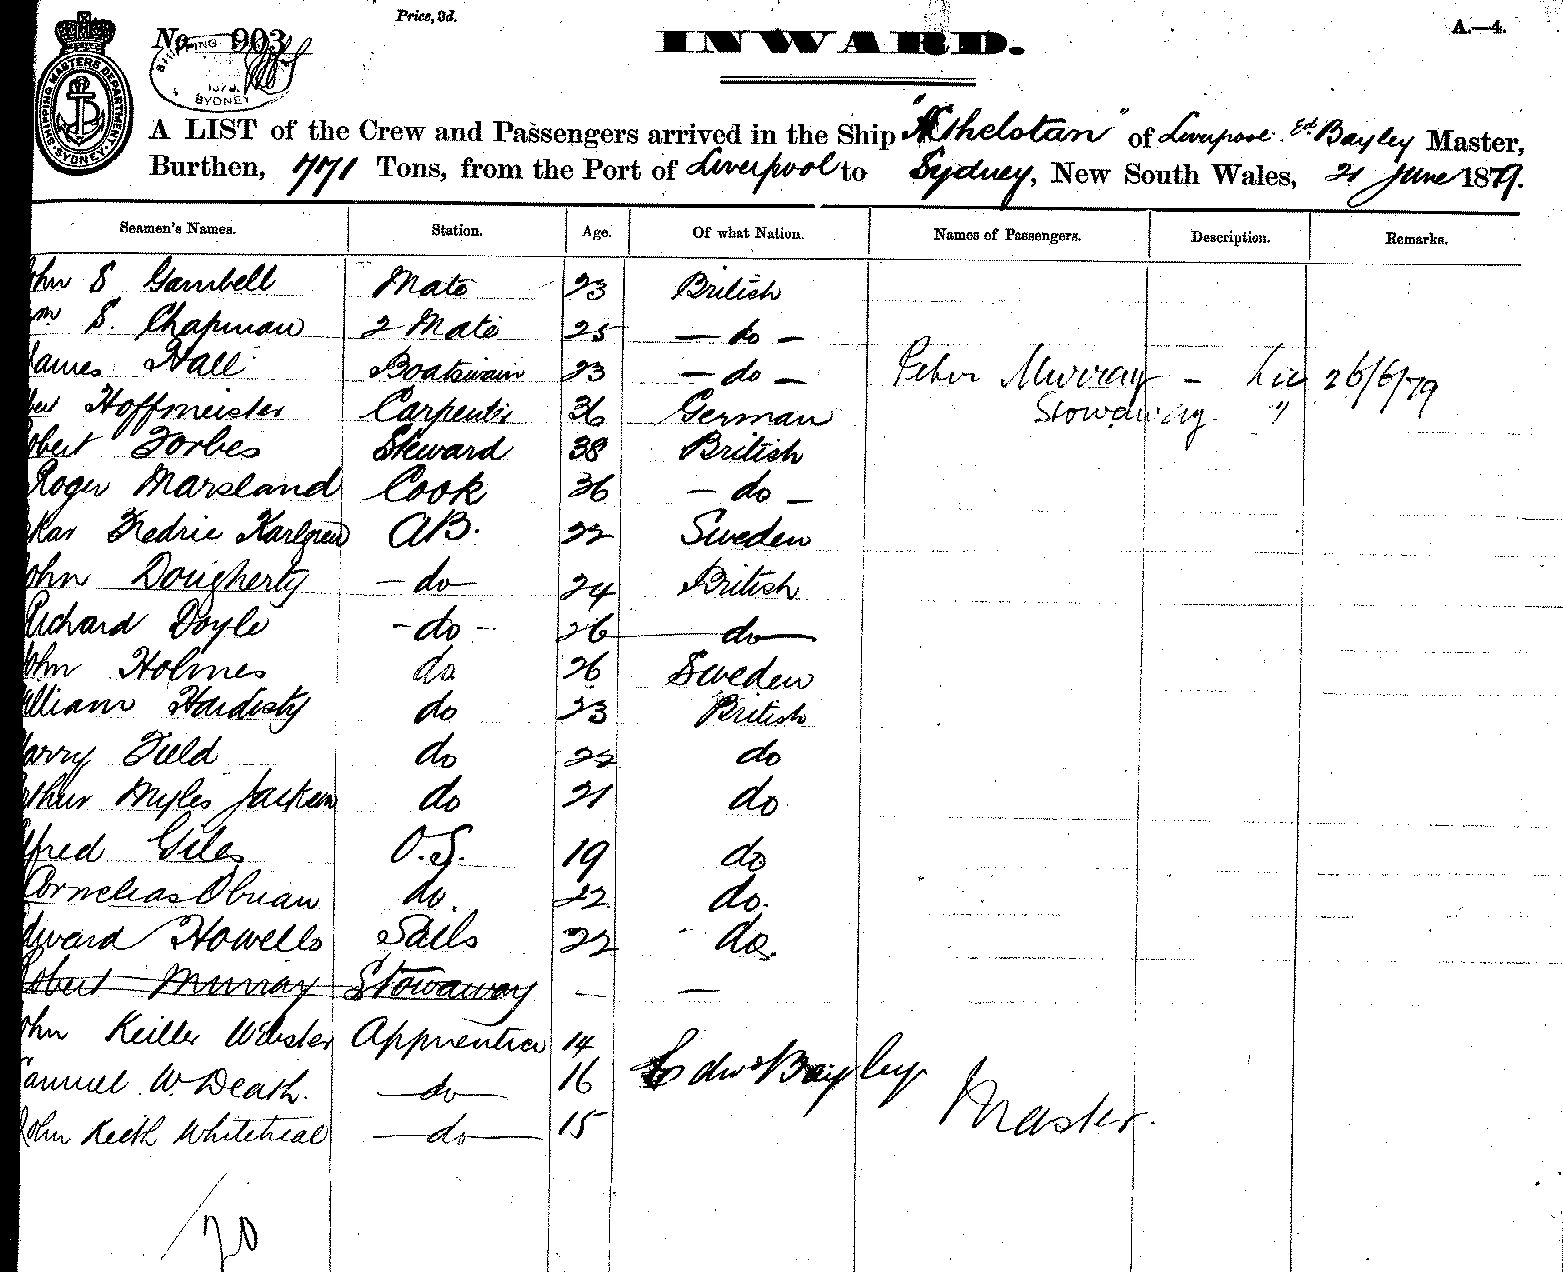 Price, 3d.
A.—4.
No. 903
INWARD.
SHIPPING MASTERS DEPARTMENT SYDNEY
SHIPPING
SYDNEY
A LIST of the Crew and Passengers arrived in the Ship "Athelstan" of Liverpool Ed Bayley Master,
Burthen, 771 Tons, from the Port of Liverpool to Sydney, New South Wales, 21 June 1879.
Seamen's Names. Station. Age. Of what Nation. Names of Passengers. Description. Remarks.
ohn S Gambell Mate 23 British
m S. Chapman 2 Mate 25 — do —
James Hall Boatswain 23 — do — Peter Murray — 26/6/79
Hoffmeister Carpenter 36 German Stowaway "
obert Forbes Steward 38 British
Roger Marsland Cook 36 — do —
skar Fredric Karlgren AB. 22 Sweden
ohn Dougherty — do — 24 British
Richard Doyle - do - 26 — do —
John Holmes do 26 Sweden
illiam Hardisty do 23 British
arry Field do 22 do
rthur Myles Jackson do 21 do
lfred Giles O.S. 19 do
Cornelias Obrian do. 22 do.
dward Howells Sails 22 do.
Robert Murray Stowaway — —
ohn Keiller Webster Apprentice 14
amuel W. Death. — do — 16 Edwd Bayley
John Keith Whiteheal — do — 15 Master.
20